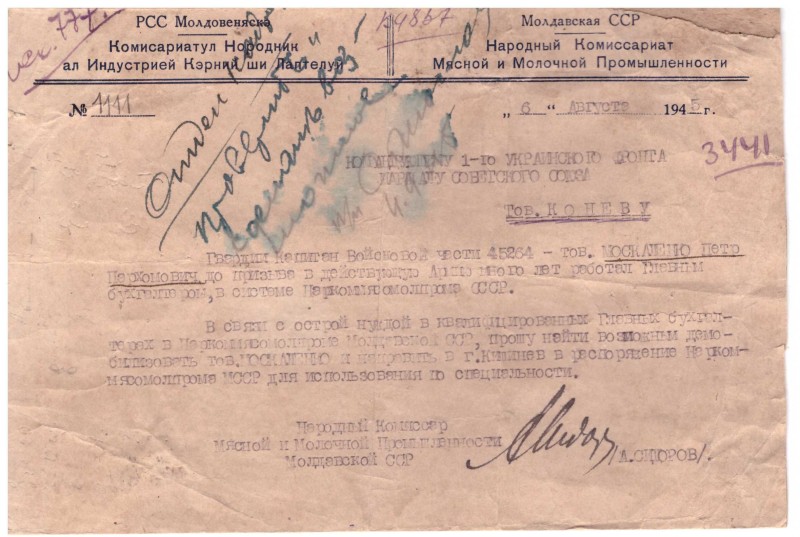 исх. 774
К4867
РСС Молдовеняскэ
Комисариатул Нородник
ал Индустрией Кэрний ши Лаптелуй
Молдавская ССР
Народный Комиссариат
Мясной и Молочной Промышленности
№ 1111
„ 6 “ Августа 1945 г.
Отдел кадров
проверить и
сделать воз-
3441
КОМАНДУЮЩЕМУ 1-го УКРАИНСКОГО ФРОНТА
МАРШАЛУ СОВЕТСКОГО СОЮЗА
Тов. КОНЕВУ
Гвардии Капитан Войсковой части 45264 - тов. МОСКАЛЕНКО Петр
Пархомович до призыва в действующую Армию много лет работал Главным
бухгалтером, в системе Наркоммясомолпрома СССР.
В связи с острой нуждой в квалифицированных Главных бухгал-
терах в Наркоммясомолпрома Молдавской ССР, прошу найти возможным демо-
билизовать тов. МОСКАЛЕНКО и направить в г. Кишинев в распоряжение Нарком-
мясомолпрома МССР для использования по специальности.
Народный Комиссар
Мясной и Молочной Промышленности
Молдавской ССР
/А.СИДОРОВ/.